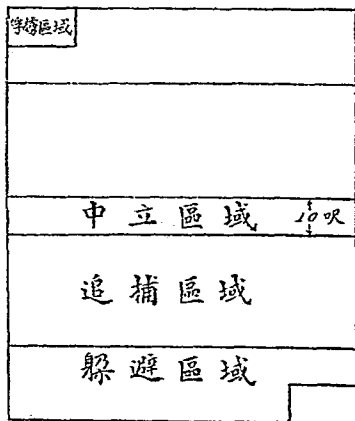 俘擄區域
中立區域 10呎
追捕區域
躲避區域